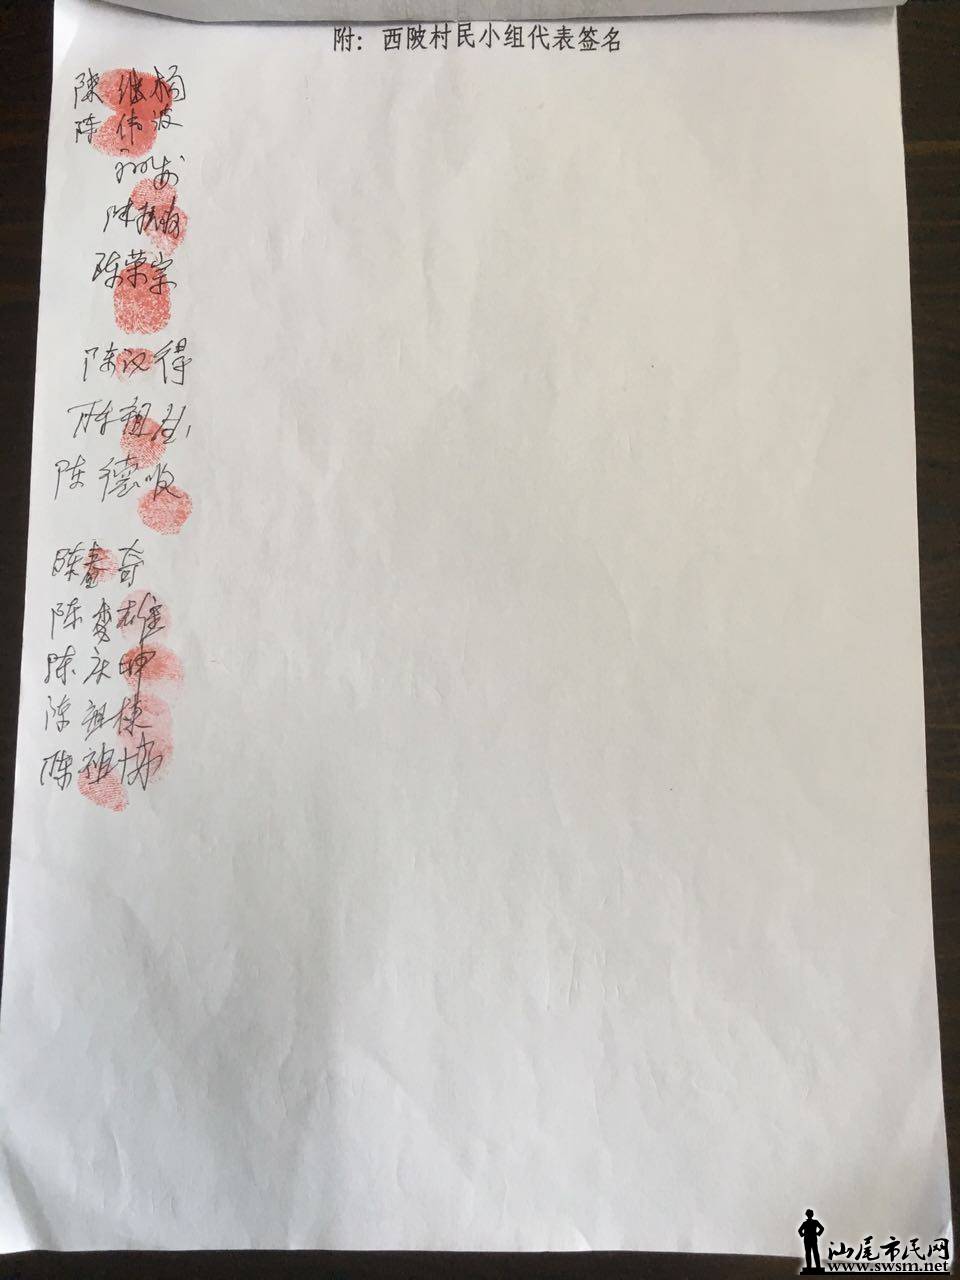 附：西陂村民小组代表签名
陳继杨
陈伟波
陈荣宗
陈汉得
陈祖
陈德
陈春奇
陈秀雄
陈庆坤
陈祖栋
陈祖协
汕尾市民网
www.swsm.net